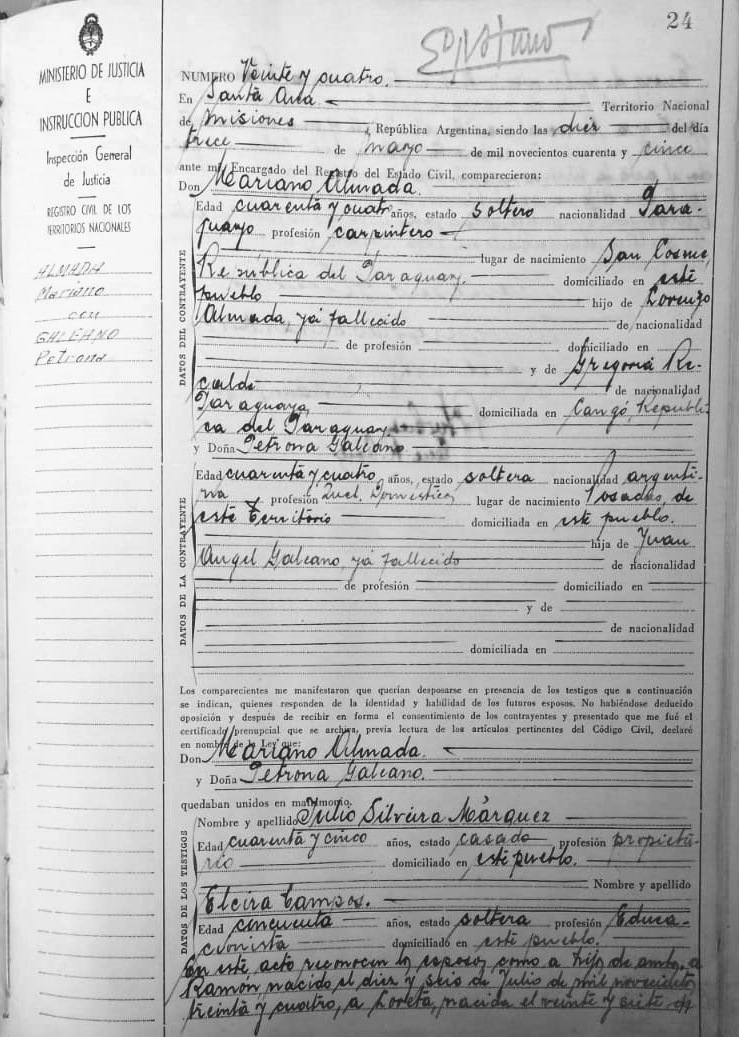 24
MINISTERIO DE JUSTICIA
E
INSTRUCCION PUBLICA
Inspección General
de Justicia
REGISTRO CIVIL DE LOS
TERRITORIOS NACIONALES
ALMADA
Mariano
con
GALEANO
Petrona
NUMERO Veinte y cuatro.
En Santa Ana. Territorio Nacional
de Misiones, República Argentina, siendo las diez del día
trece de mayo de mil novecientos cuarenta y cinco
ante mi Encargado del Registro del Estado Civil, comparecieron:
Don Mariano Almada.
DATOS DEL CONTRAYENTE
Edad cuarenta y cuatro años, estado soltero nacionalidad Para-
guayo profesión carpintero
lugar de nacimiento San Cosme,
República del Paraguay. domiciliado en este
pueblo hijo de Lorenzo
Almada, yá fallecido de nacionalidad
de profesión domiciliado en
y de Gregoria Re-
calde de nacionalidad
Paraguaya, domiciliada en Cangó, Republi-
ca del Paraguay
y Doña Petrona Galeano
DATOS DE LA CONTRAYENTE
Edad cuarenta y cuatro años, estado soltera nacionalidad argenti-
na profesión Quel. Domésticos lugar de nacimiento Posadas, de
este Territorio domiciliada en este pueblo.
hija de Juan
Angel Galeano, yá fallecido de nacionalidad
de profesión domiciliado en
y de
de nacionalidad
domiciliada en
Los comparecientes me manifestaron que querían desposarse en presencia de los testigos que a continuación
se indican, quienes responden de la identidad y habilidad de los futuros esposos. No habiéndose deducido
oposición y después de recibir en forma el consentimiento de los contrayentes y presentado que me fué el
certificado prenupcial que se archiva, previa lectura de los artículos pertinentes del Código Civil, declaré
en nombre de la Ley que:
Don Mariano Almada.
y Doña Petrona Galeano.
quedaban unidos en matrimonio.
DATOS DE LOS TESTIGOS
Nombre y apellido Julio Silveira Márquez
Edad cuarenta y cinco años, estado casado profesión propietá-
rio domiciliado en este pueblo.
Nombre y apellido
Elcira Campos.
Edad cincuenta años, estado soltera profesión Educa-
cionista domiciliado en este pueblo.
En este acto reconocen los esposos como a hijos de ambos, a
Ramón nacido el diez y seis de Julio de mil novecientos
treinta y cuatro, a Loreta, nacida el veinte y siete de